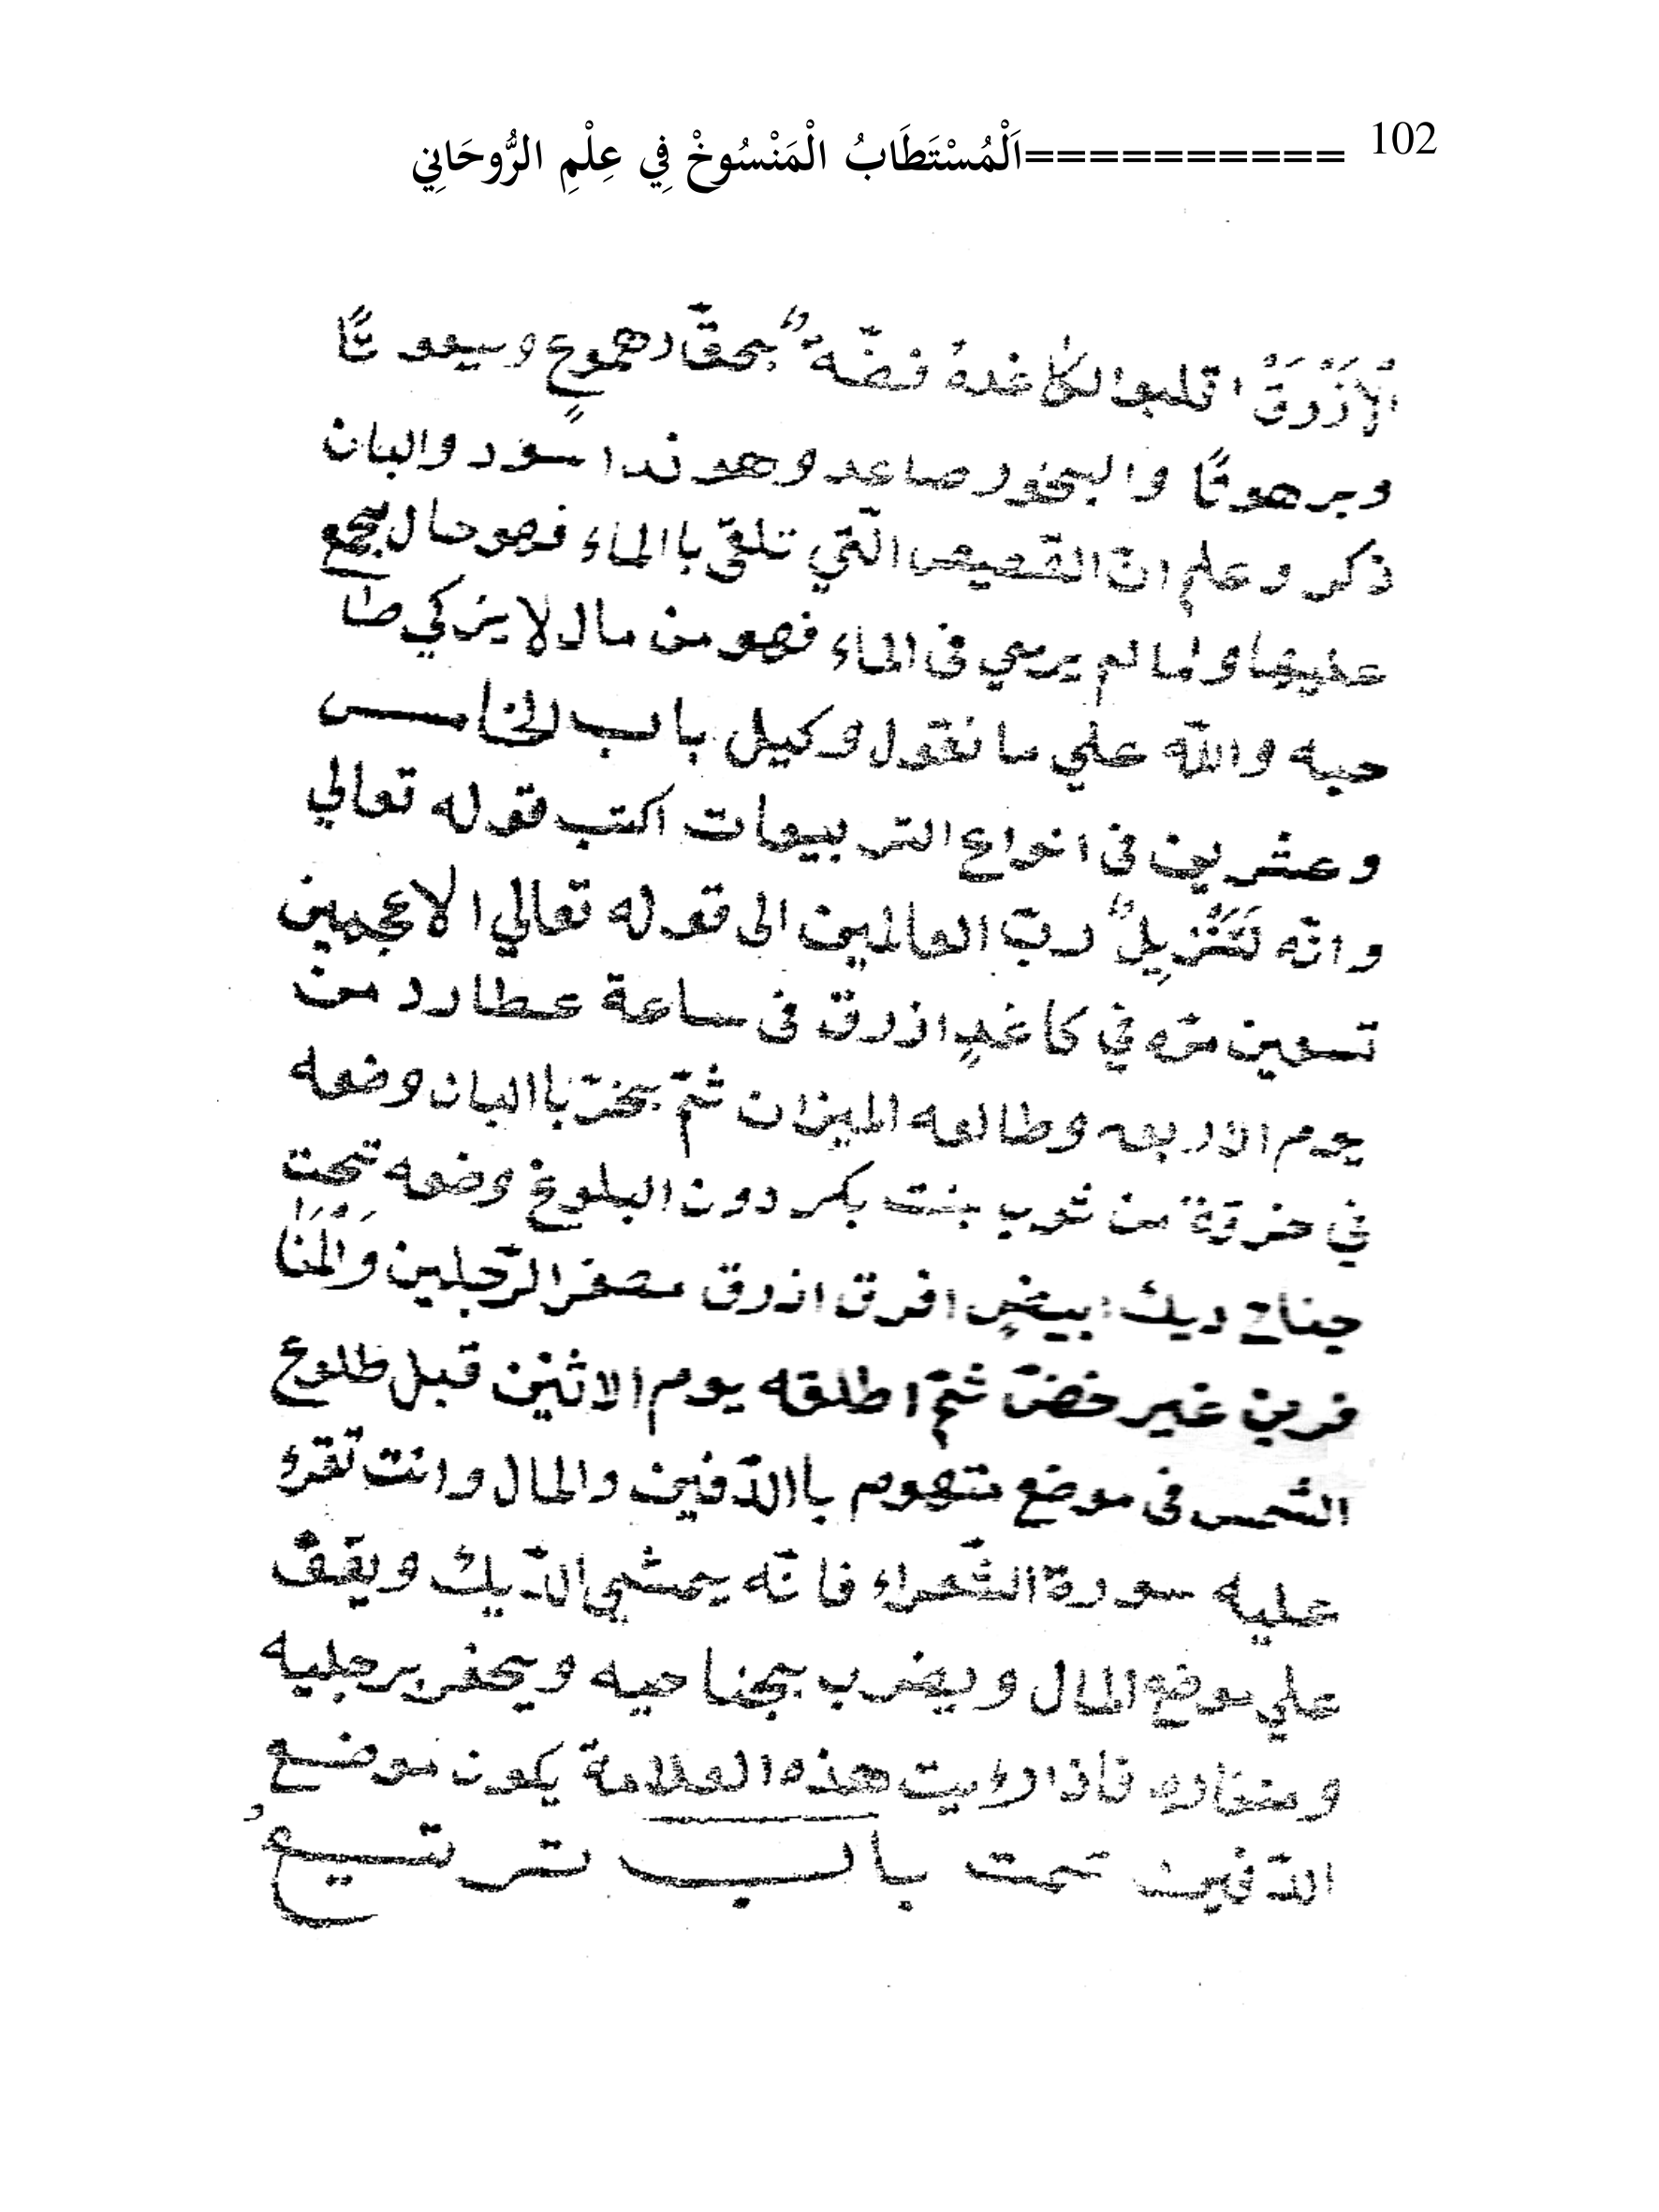 102 ==========اَلْمُسْتَطَابُ الْمَنْسُوخْ فِي عِلْمِ الرُّوحَانِي
اقلبوا لكاغدة فضّة بحقّ دهموعٍ
وبرهوتًا والبخور صاعد وهو ندا سود والبان
ذكر وعلم انّ القصيص الّتي تلقى باالماء فهو حال
عليها ولما لم يرمي فى الماء فهو من مال لا يزكي
حبه واللّه علي ما نقول وكيل باب الخامس
وعشرين فى انواع التربيعات اكتب قوله تعالي
وانّه لَتَنْزِيلٌ ربّ العالمين الى قوله تعالي الاعجمين
تسعين مرّه في كاغدٍ ازرق فى ساعة عطارد من
يوم الاربعه وطالعه الميزان ثمّ بخّر باالبان وضعه
في خرقة من ثوب بنت بكر دون البلوغ وضعه تحت
جناح ديك ابيضٍ افرق ازرق مصفر الرّجلين
غير ثمّ اطلقه يوم الاثنين قبل طلوع
الشمس فى موضع متهوم باالدّفين والمال وانت تقرء
عليه سورة الشّعراء فانّه يمشي الدّيك ويقف
علي موضع المال ويضرب بجناحيه ويحفر برجليه
ومنقاره فاذا رءيت هذه العلامة يكون موضع
الدّفين تمت باب